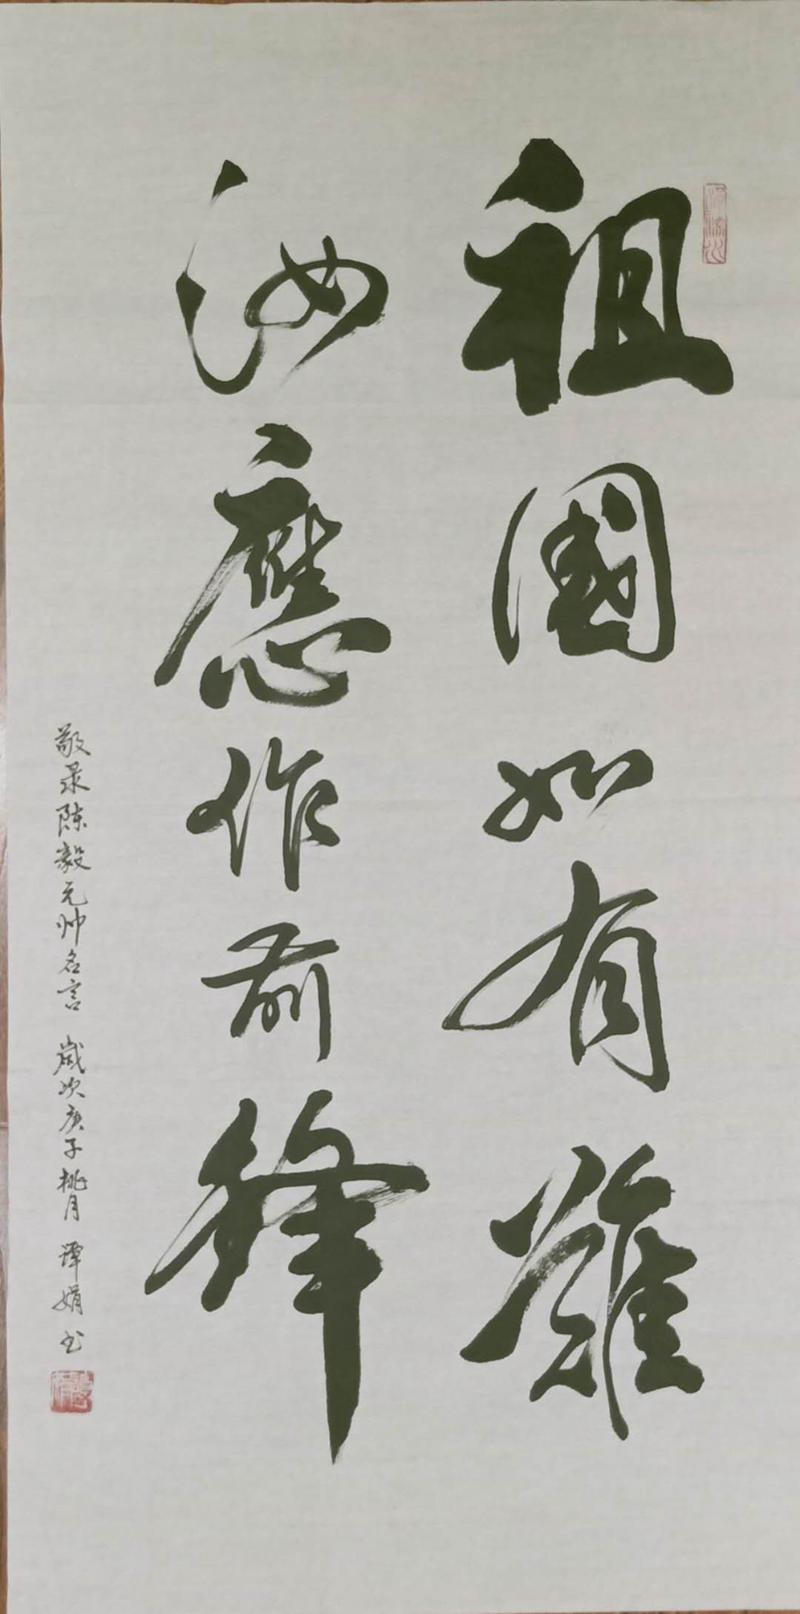 祖國如有難
汝應作前鋒
敬录陈毅元帅名言 歲次庚子桃月 谭娟书